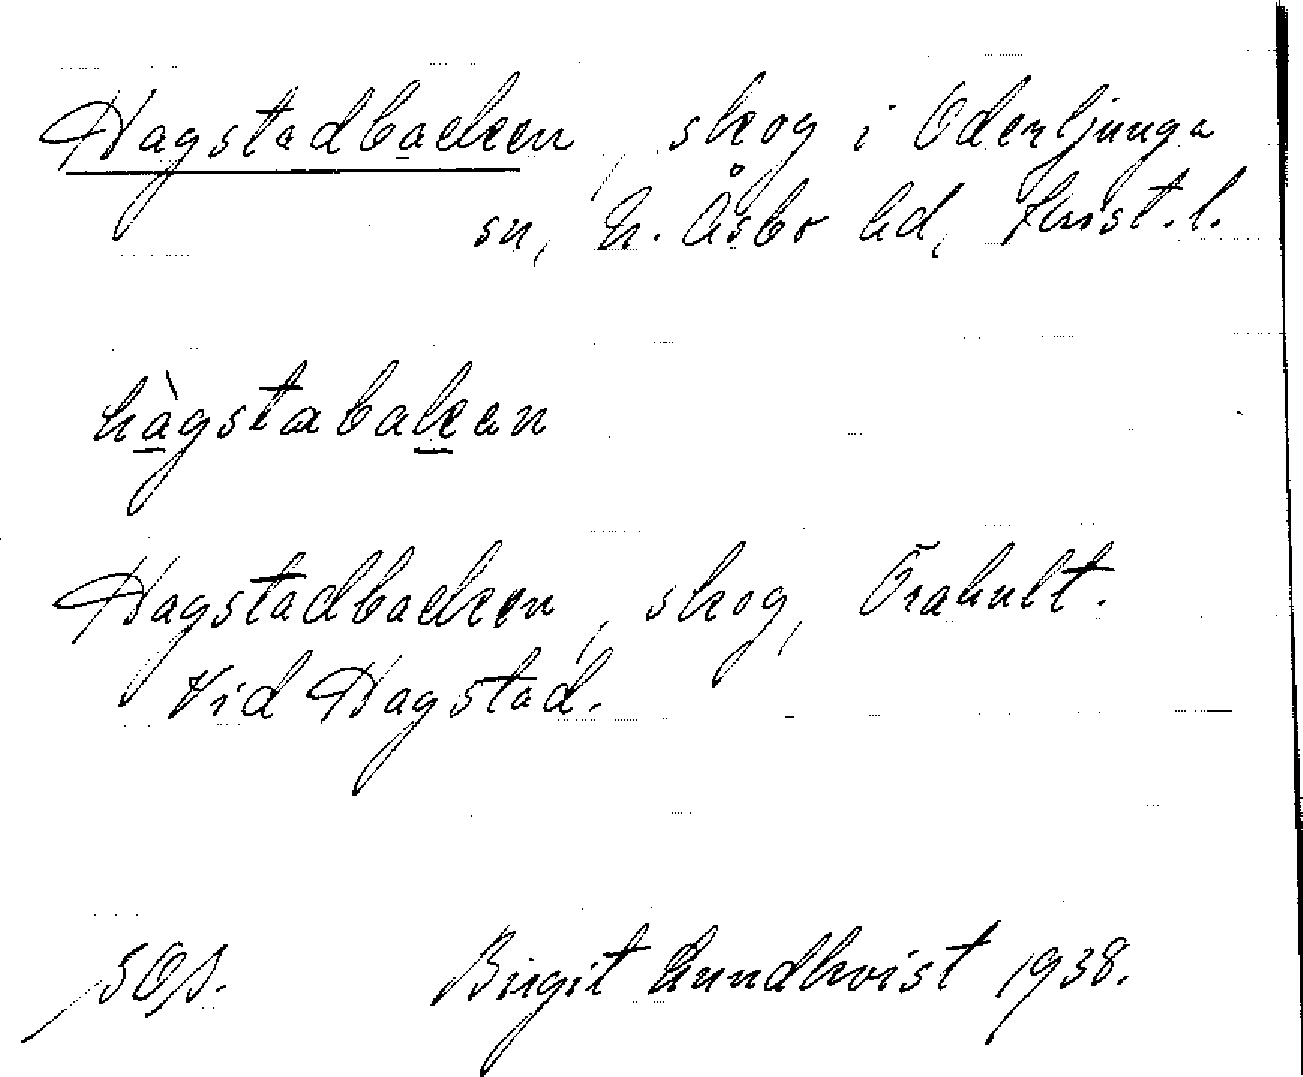 Hagstadbacken, skog i Oderljunga
sn, N. Åsbo hd, Krist. l.
hàgstabaken
Hagstadbacken, skog, Örahult.
Vid Hagstad.
SOA. Birgit Lundkvist 1938.